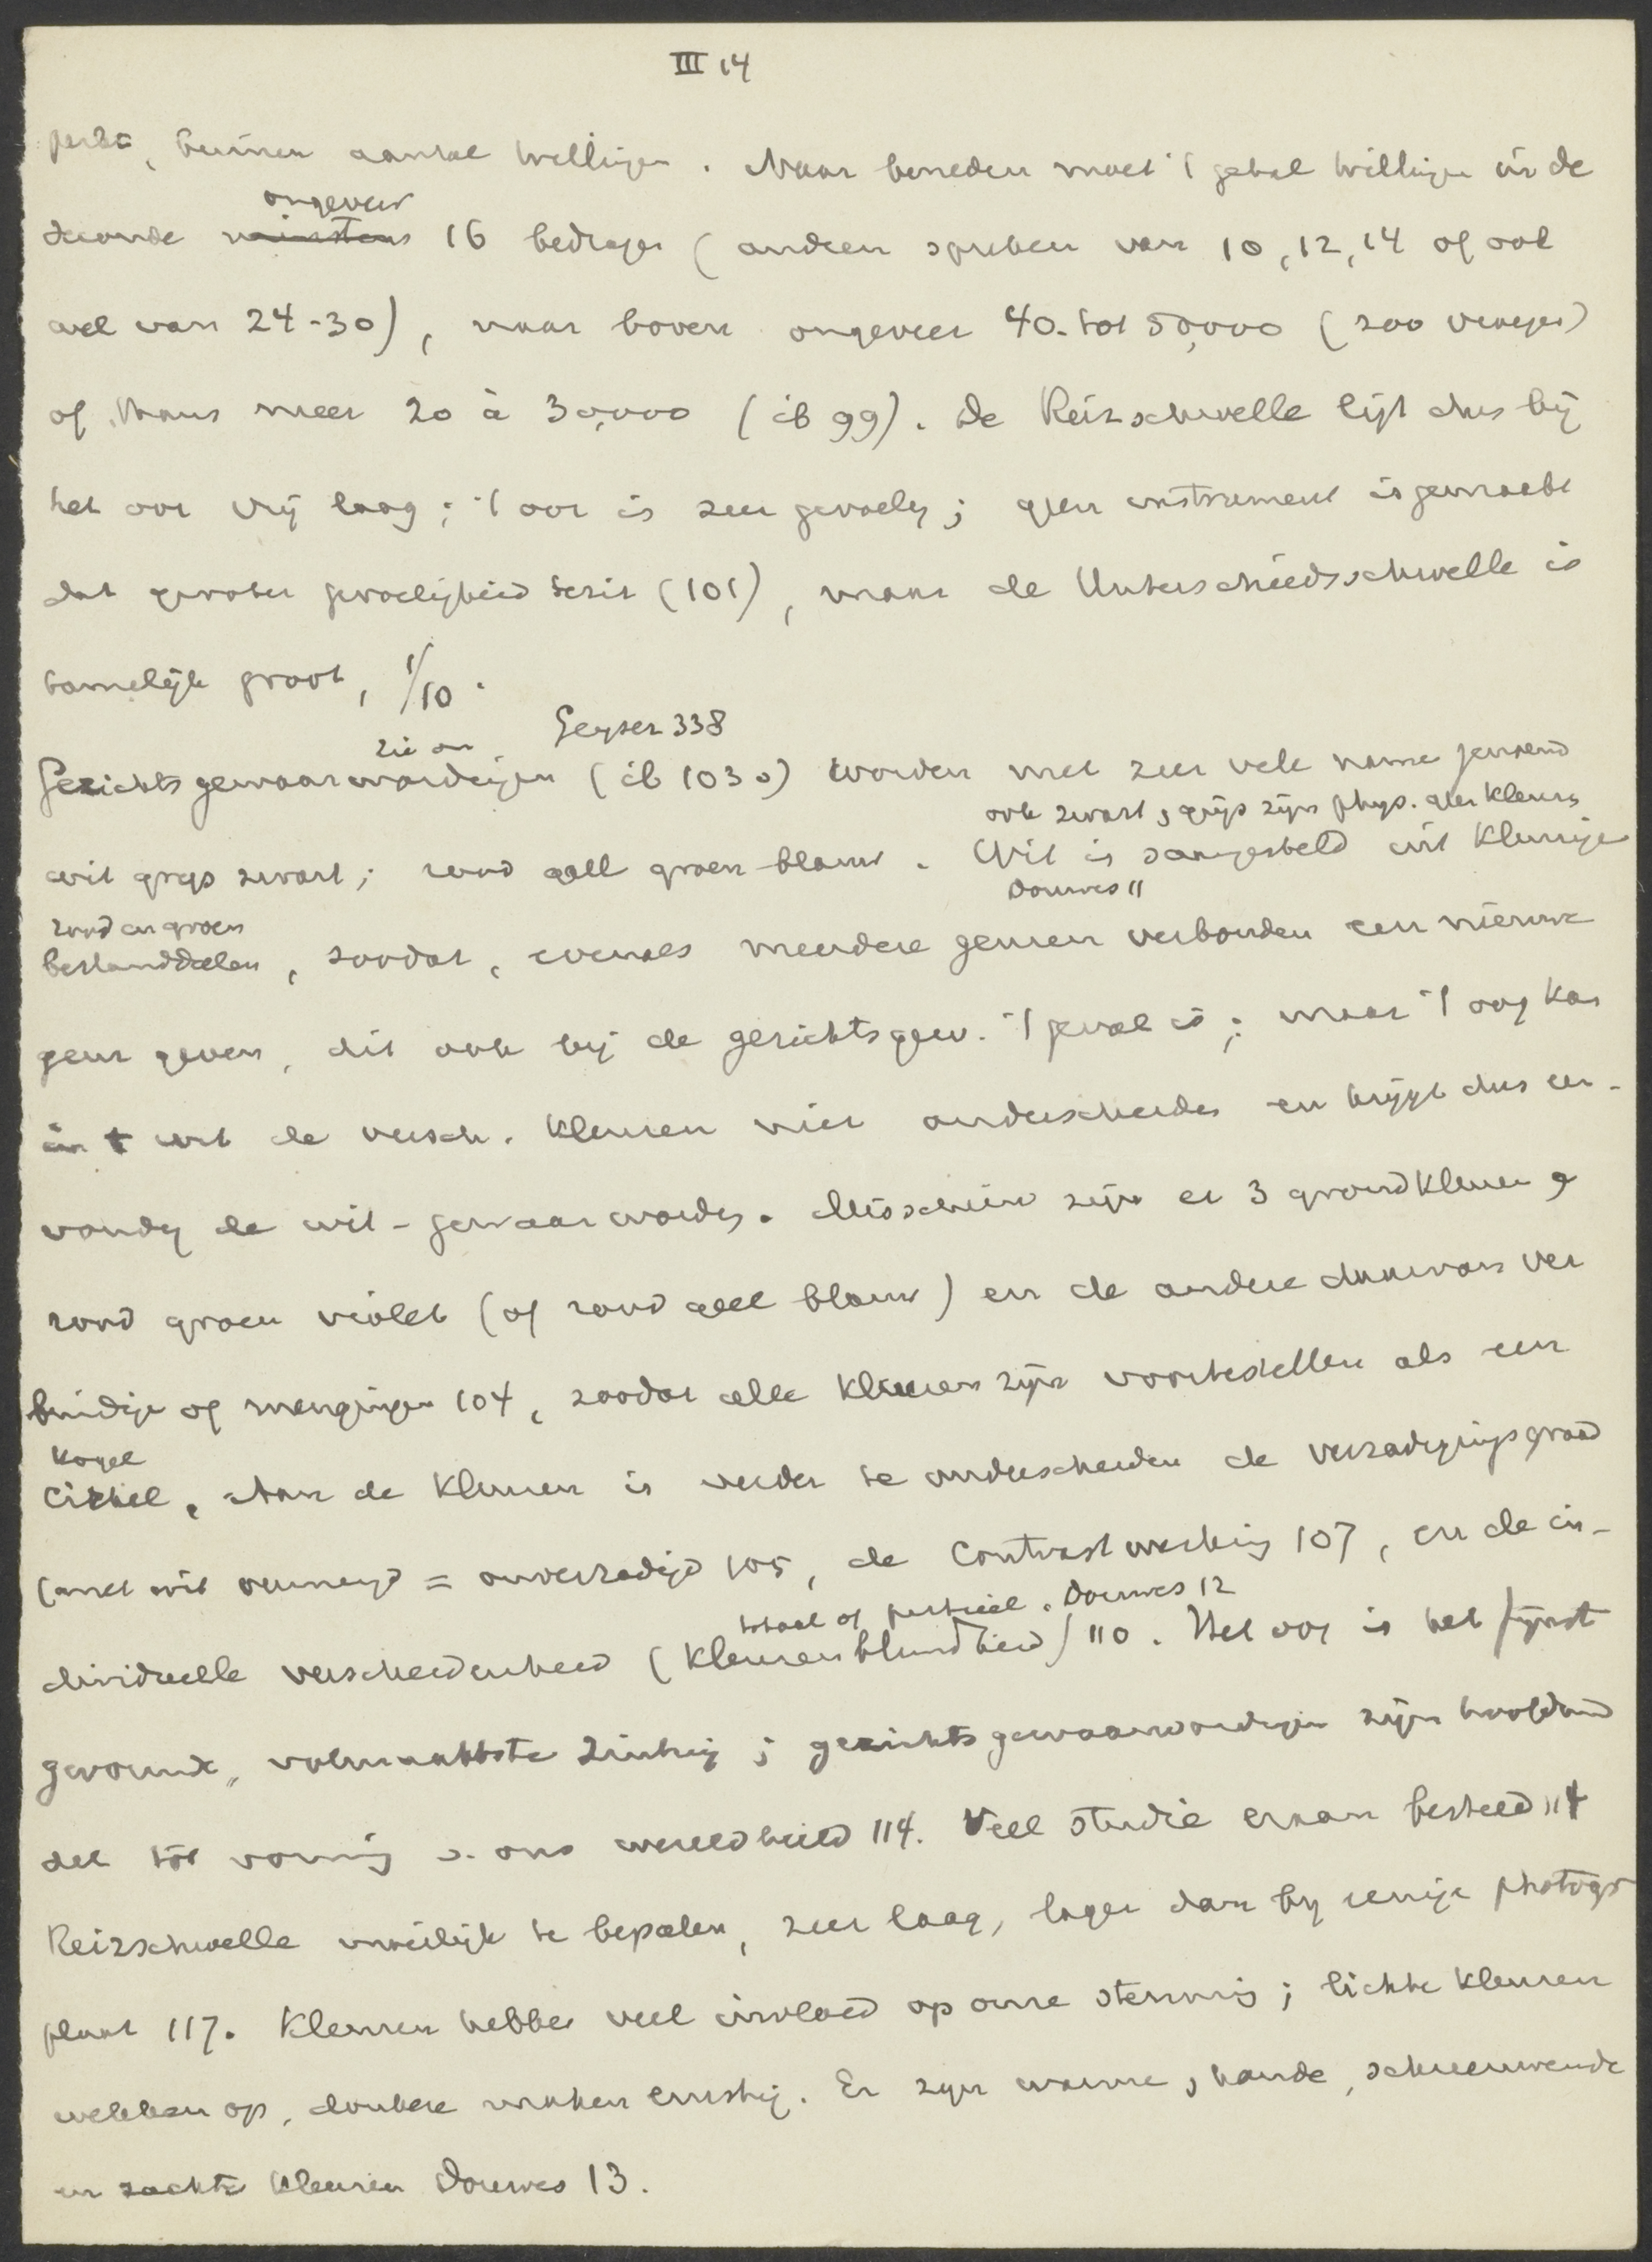 III 14
perkt, binnen aantal trillingen. Naar beneden moet 't getal trillingen in de
ongeveer
seconde minstens 16 bedragen (anderen spreken van 10, 12, 14 of ook
wel van 24-30), naar boven ongeveer 40- tot 50,000 (200 vroeger)
of, thans meer 20 à 30,000 (ib 99). De Reizschwelle ligt dus bij
het oor vrij laag; 't oor is zeer gevoelig; geen instrument is gemaakt
dat grooter gevoeligheid bezit (101), maar de Unterschiedsschwelle is
tamelijk groot, 1/10.
zie an. Geyser 338
Gezichtsgewaarwordingen (ib 103 ) worden met zeer vele name genoemd
ook zwart, grijs zijn phys. geen kleuren
wit grijs zwart; rood geel groen blauw. Wit is saamgesteld uit kleurige
Douwes 11
rood en groen
bestanddeelen, zoodat, evenals meerdere geuren verbonden een nieuwe
geur geven, dit ook bij de gezichtsgew. 't geval is; maar 't oog kan
in t wit de versch. kleuren niet onderscheiden en krijgt dus een-
voudig de wit-gewaarwording. Misschien zijn er 3 grondkleuren
rood groen violet (of rood geel blauw) en de andere daarvan ver
bindingen of mengingen 104, zoodat alle kleuren zijn voortestellen als een
kogel
cirkel. Aan de kleuren is verder te onderscheiden de verzadigingsgraad
(met wit vermengd = onverzadigd 105, de contrastwerking 107, en de in-
totaal of partieel. Douwes 12
dividueele verscheidenheid (kleurenblindheid) 110. Het oog is het fijnst
gevormde, volmaaktste zintuig; gezichtsgewaarwordingen zijn hoofdmid
del tot vorming v. ons wereldbeeld 114. Veel studie eraan besteed 114
Reizschwelle moeilijk te bepalen, zeer laag, lager dan bij eenige photogr
plaat 117. Kleuren hebben veel invloed op onze stemming; lichte kleuren
wekken op, donkere maken ernstig. Er zijn warme, koude, schreeuwende
en zachte kleuren Douwes 13.